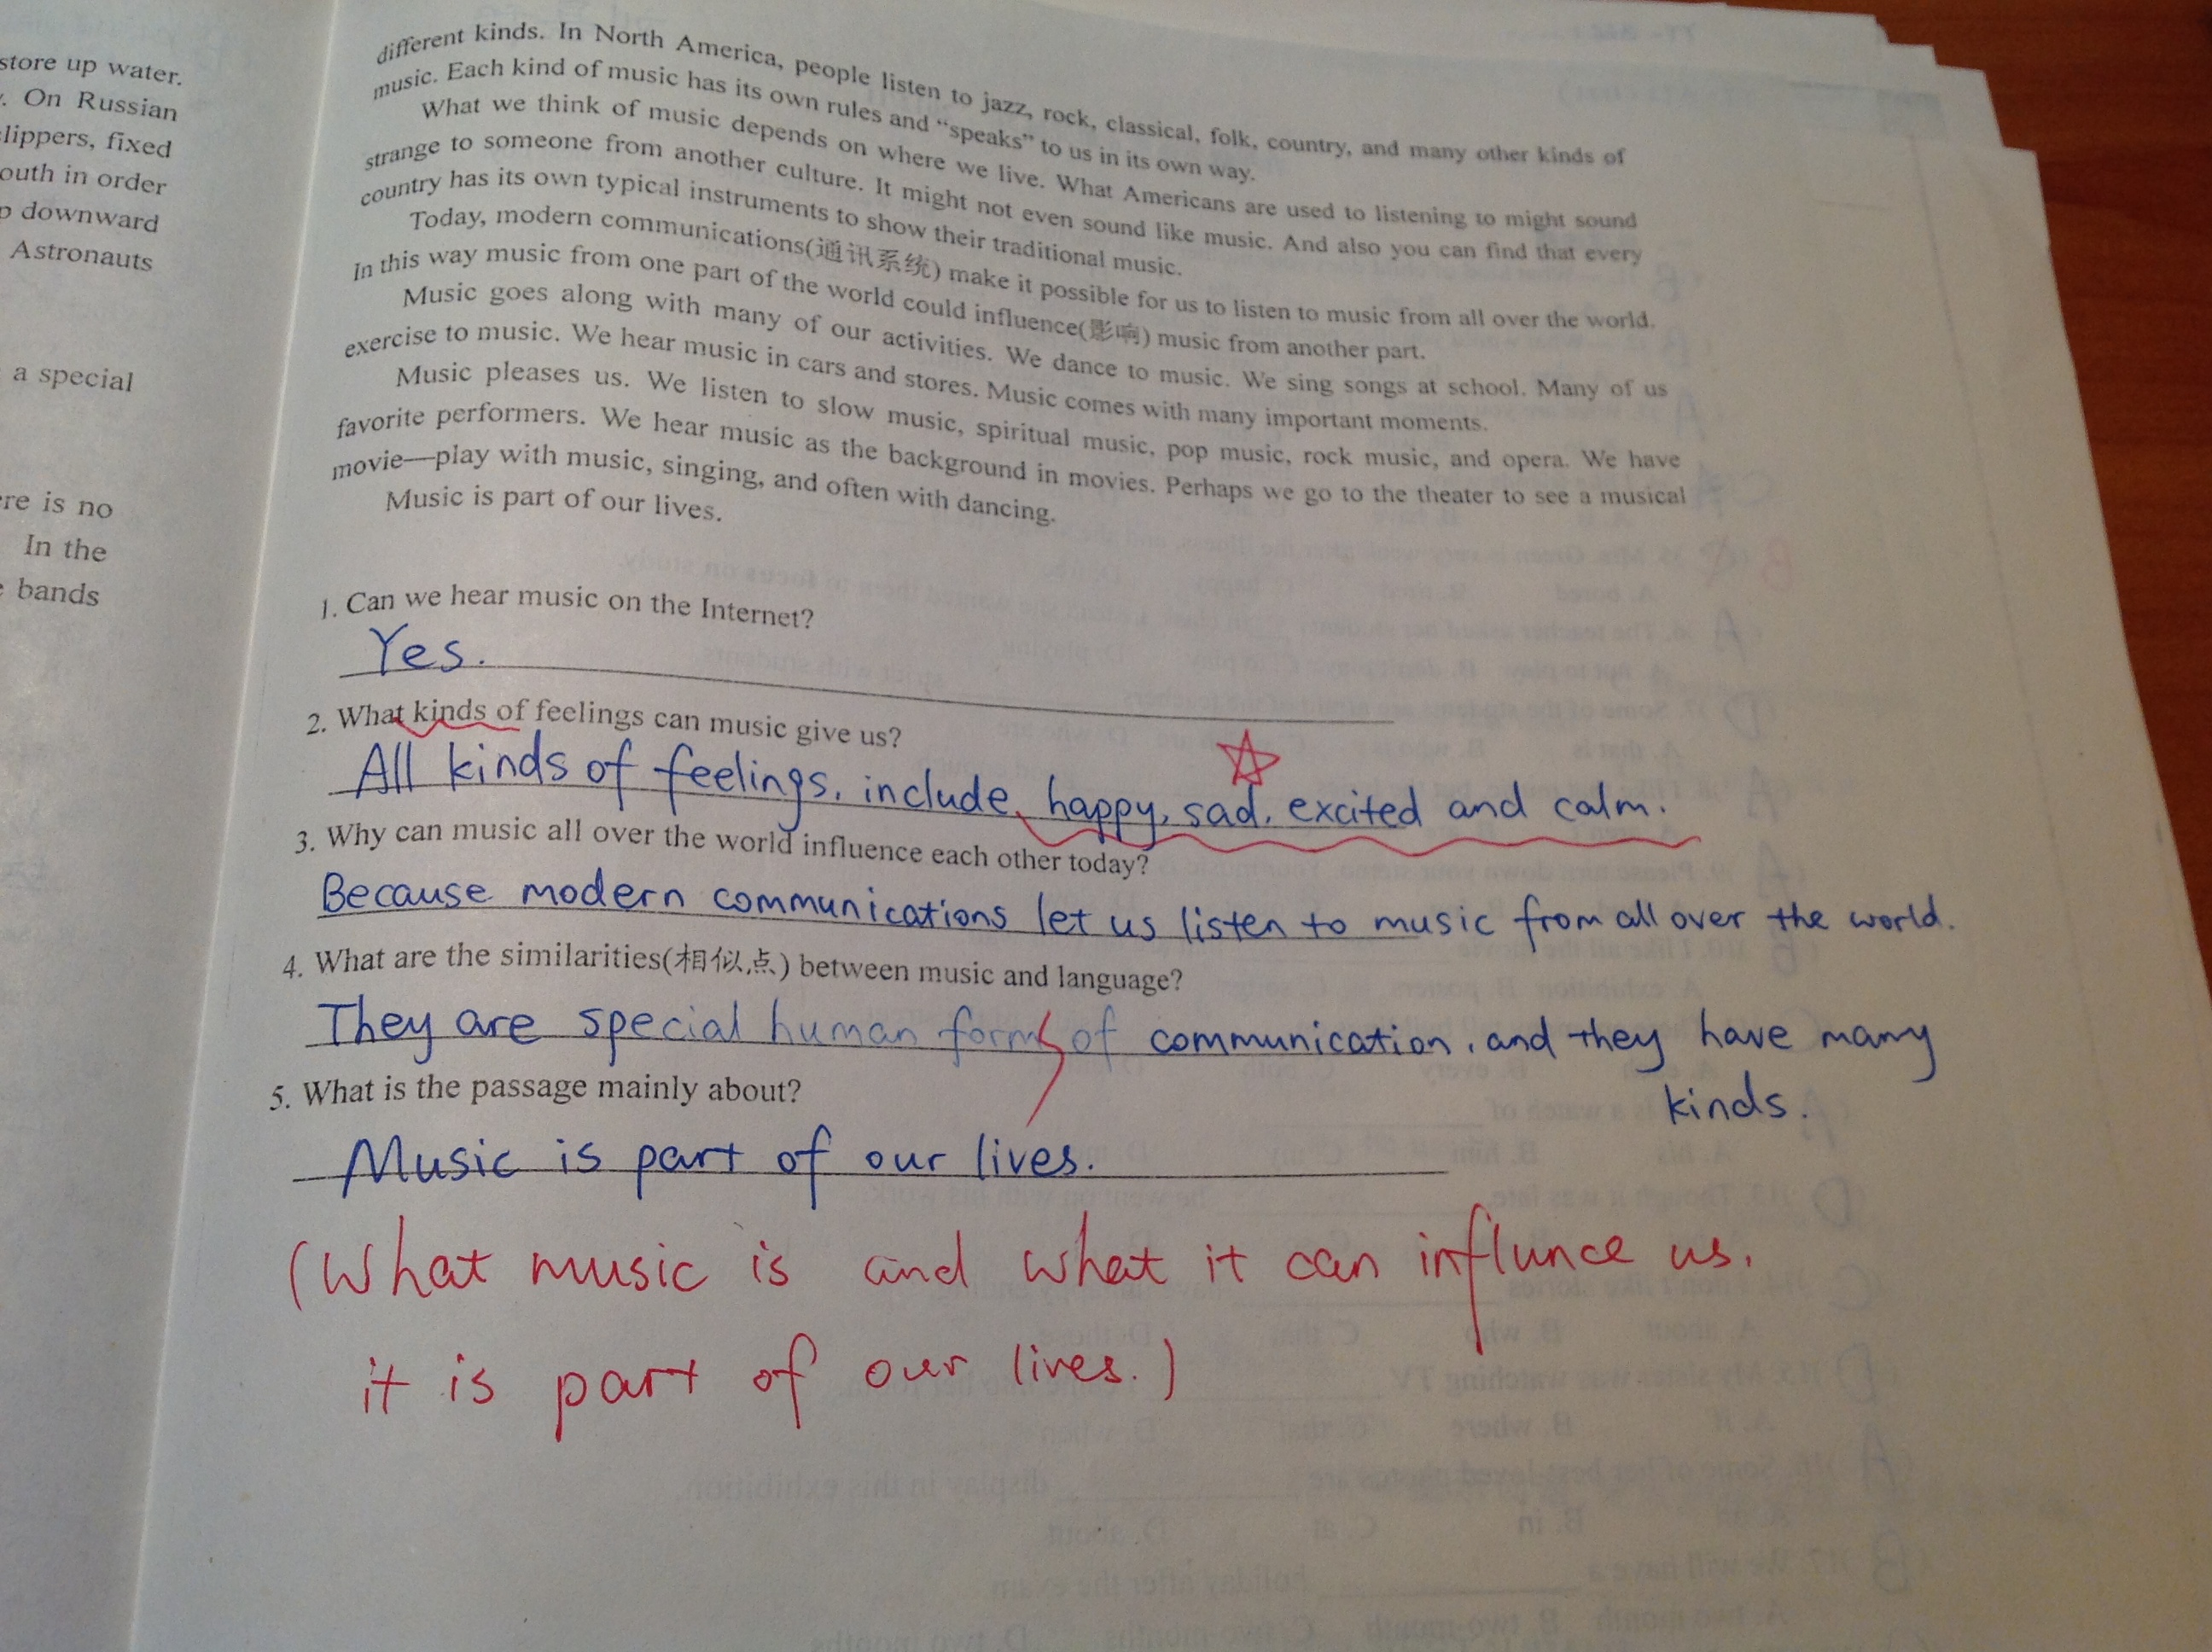 store up water.
. On Russian
slippers, fixed
outh in order
p downward
Astronauts
a special
ere is no
In the
bands
different kinds. In North America, people listen to jazz, rock, classical, folk, country, and many other kinds of
music. Each kind of music has its own rules and “speaks” to us in its own way.
What we think of music depends on where we live. What Americans are used to listening to might sound
strange to someone from another culture. It might not even sound like music. And also you can find that every
country has its own typical instruments to show their traditional music.
Today, modern communications(通讯系统) make it possible for us to listen to music from all over the world.
In this way music from one part of the world could influence(影响) music from another part.
Music goes along with many of our activities. We dance to music. We sing songs at school. Many of us
exercise to music. We hear music in cars and stores. Music comes with many important moments.
Music pleases us. We listen to slow music, spiritual music, pop music, rock music, and opera. We have
favorite performers. We hear music as the background in movies. Perhaps we go to the theater to see a musical
movie—play with music, singing, and often with dancing.
Music is part of our lives.
1. Can we hear music on the Internet?
Yes.
2. What kinds of feelings can music give us?
All kinds of feelings, include happy, sad, excited and calm.
3. Why can music all over the world influence each other today?
Because modern communications let us listen to music from all over the world.
4. What are the similarities(相似点) between music and language?
They are special human forms of communication, and they have many
kinds.
5. What is the passage mainly about?
Music is part of our lives.
(What music is and what it can influnce us,
it is part of our lives.)